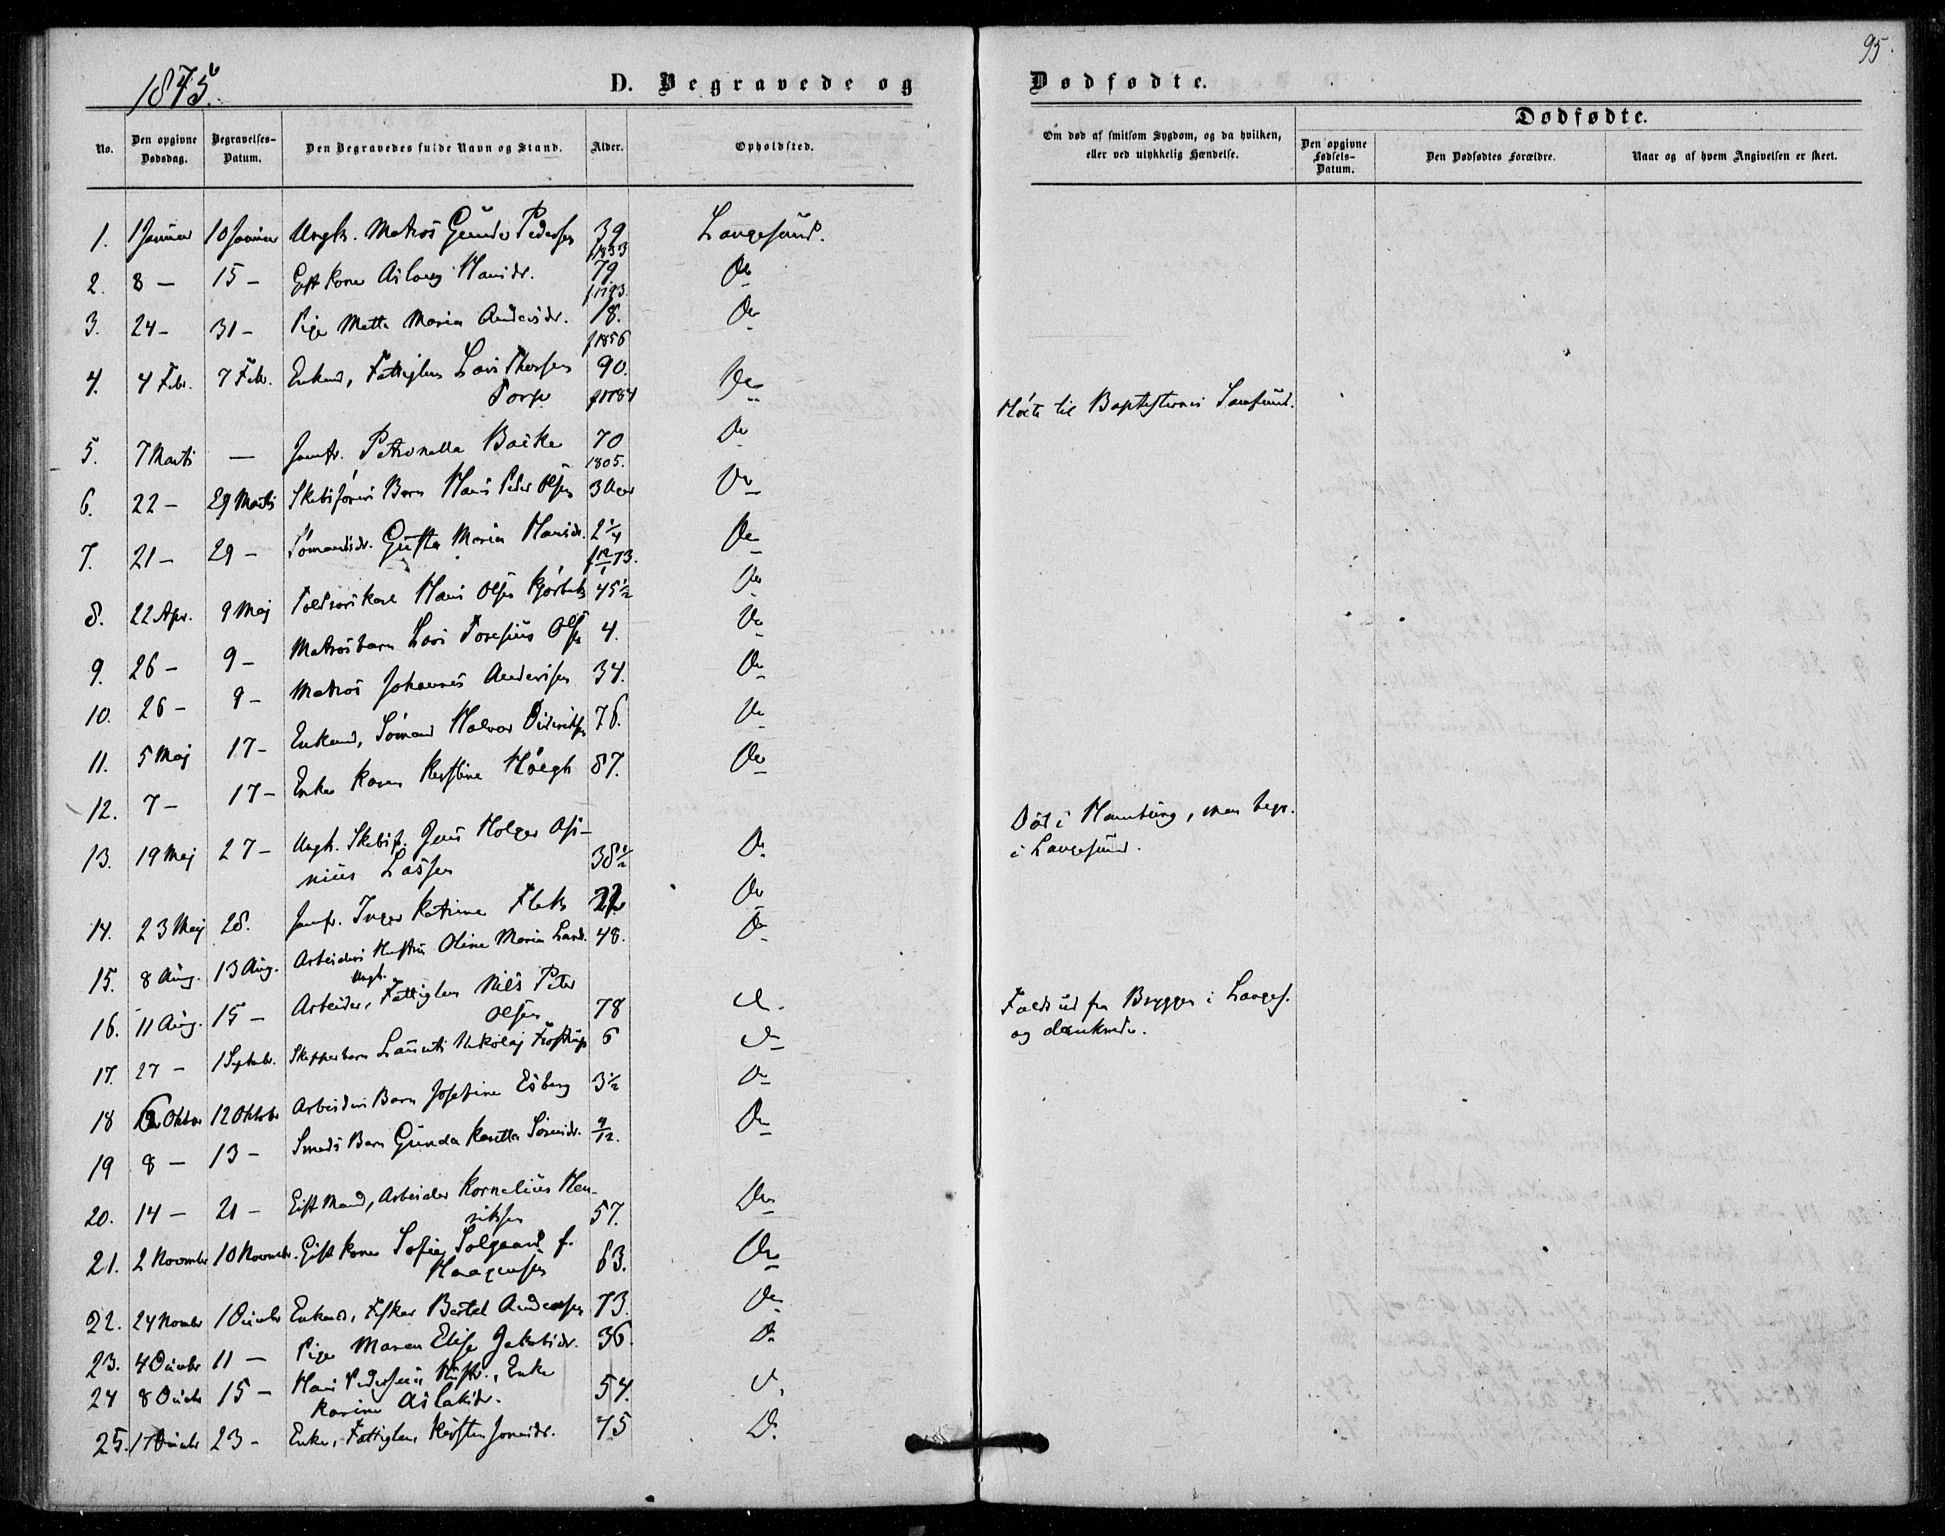 95.
1875.
D. Begravede og Dødfødte.
No. Den opgivne Dødsdag. Begravelses-Datum. Den Begravedes fulde Navn og Stand. Alder. Opholdsted.
Om død af smitsom Sygdom, og da hvilken, eller ved ulykkelig Hændelse.
Dødfødte.
Den opgivne Fødsels-Datum. Den Dødfødtes Forældre. Naar og af hvem Angivelsen er skeet.
1. 1 Januar 10 Januar Ungk. Matros Gunder Pedersen 39 Langesund.
f 1833
2. 8 – 15 – Gift Kone Aslaug Hansdr. 79 Do
f 1793.
3. 24 – 31 – Pige Mette Maria Andersdr. 18. Do
f 1856
4. 4 Febr. 7 Febr. Enkem., Fattiglem Lars Thorsen 90. Do
f 1784 Hörte til Baptisternes Samfund.
5. 7 Marts — Jomfr. Petronella Backe 70 Do
1805.
6. 22 – 29 Marts Barn Hans Peder Olsen 3 Do
7. 21 – 29 – Gusta Maria Hansdr. 2 1/4 Do
8. 22 Apr. 9 Maj Hans Olsen 45 1/2 Do
9. 26 – 9 – Matrosbarn Lars Olsen 4. Do
10. 26 – 9 – Matros Johannes Andersen 34. Do
11. 5 Maj 17 – Enkem., Sömand Halvor Didriksen 76. Do
12. 7 – 17 – Enke Karen Kirstine Høegh 87. Do
13. 19 Maj 27 – Ungk. Skibsf. Jens Holger Asi-
nius Lassen 38 1/2 Do
Död i Hamburg, men begr.
i Langesund.
14. 23 Maj 28. Jomfr. Inger Katrine Do
15. 8 Aug. 13 Aug. Arbeiders Hustru Oline Maria 48. Do
Ungk.
16. 11 Aug. 15 – Arbeider, Fattiglem Nils Peter
Olsen 78 Do
Faldt ud fra Bryggen i Langes.
og druknede.
17. 27 – 1 Septbr. Skipperbarn Laurits Nikolaj 6 Do
18 Oktober 12 Oktober Arbeiders Barn Josefine Esberg 3 1/2 Do
19 8 – 13 – Smeds Barn Gunda 9/12. Do
20. 14 – 21 – Gift Mand, Arbeider Kornelius Hen-
riksen 57. Do
21. 2 November 10 Novembr. Gift Kone Sofie Solgaard f.
Haagensen 63. Do
22. 24 Novmbr 1 Decmbr Enkem., Fisker Bertel Andersen 73. Do
23. 4 Decmbr 11 – Pige Maren Elise Jakobsdr. 36. Do
24 8 Decbr 15 – Hans Pedersens Hustr., Enke
Karine Aslaksdr. 54. Do
25. 17 Decmbr 23 – Enke, Fattiglem 75 Do